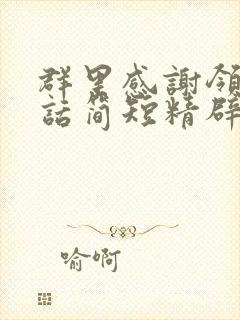 群里感謝領
話简短精辟
喻啊